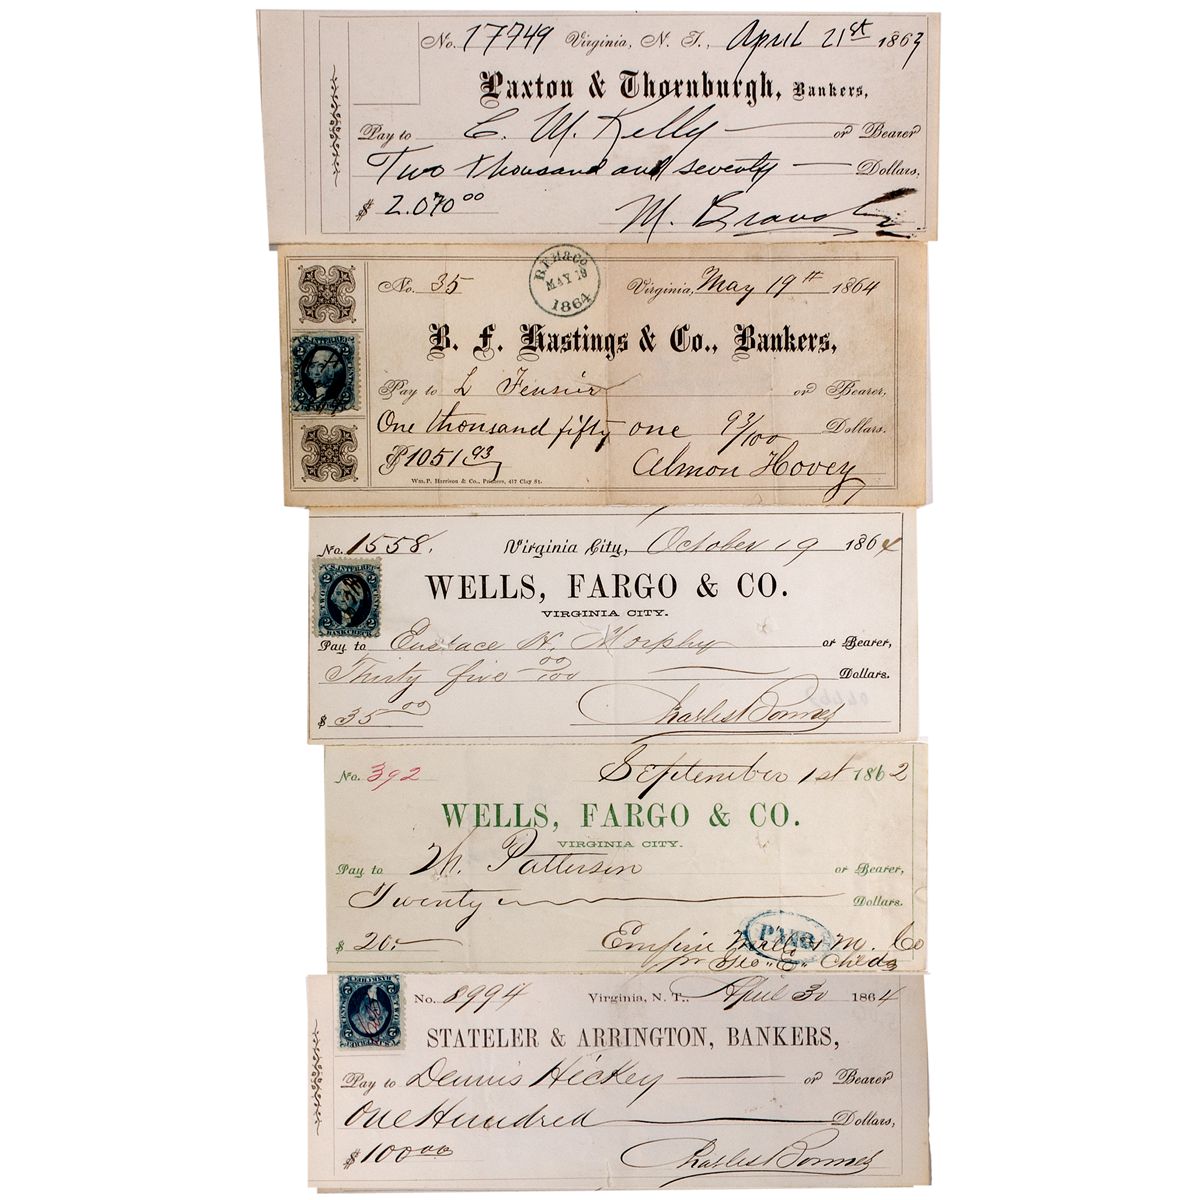 No. 17749 Virginia, N. T., April 21st 1863
Paxton & Thornburgh, Bankers,
Pay to C. M. Kelly or Bearer
Two thousand and seventy Dollars,
$ 2.070 00
M.
B.F.H & Co
MAY 19
1864
No. 35 Virginia, May 19th 1864
B. F. Hastings & Co., Bankers,
U.S. INTER. REV.
Pay to L or Bearer,
One thousand fifty one 93/100 Dollars.
$1051 93 Almon Hovey
Wm. P. Harrison & Co., Printers, 417 Clay St.
No. 1558. Virginia City, October 19 1864
WELLS, FARGO & CO.
VIRGINIA CITY.
U.S. INTER. REV.
BANK CHECK
Pay to Eustace H. Morphy or Bearer,
Thirty five 00/100 Dollars.
$ 35 00 Charles Bonner
No. 392 September 1st 1862
WELLS, FARGO & CO.
VIRGINIA CITY.
Pay to M. Patterson or Bearer,
Twenty Dollars.
PAID
$ 20.- Empire Mill & M. Co
pr Geo. E. Childs
No. 8994 Virginia, N. T., April 30 1864
STATELER & ARRINGTON, BANKERS,
Pay to Dennis Hickey or Bearer
One Hundred Dollars,
$ 100 00 Charles Bonner